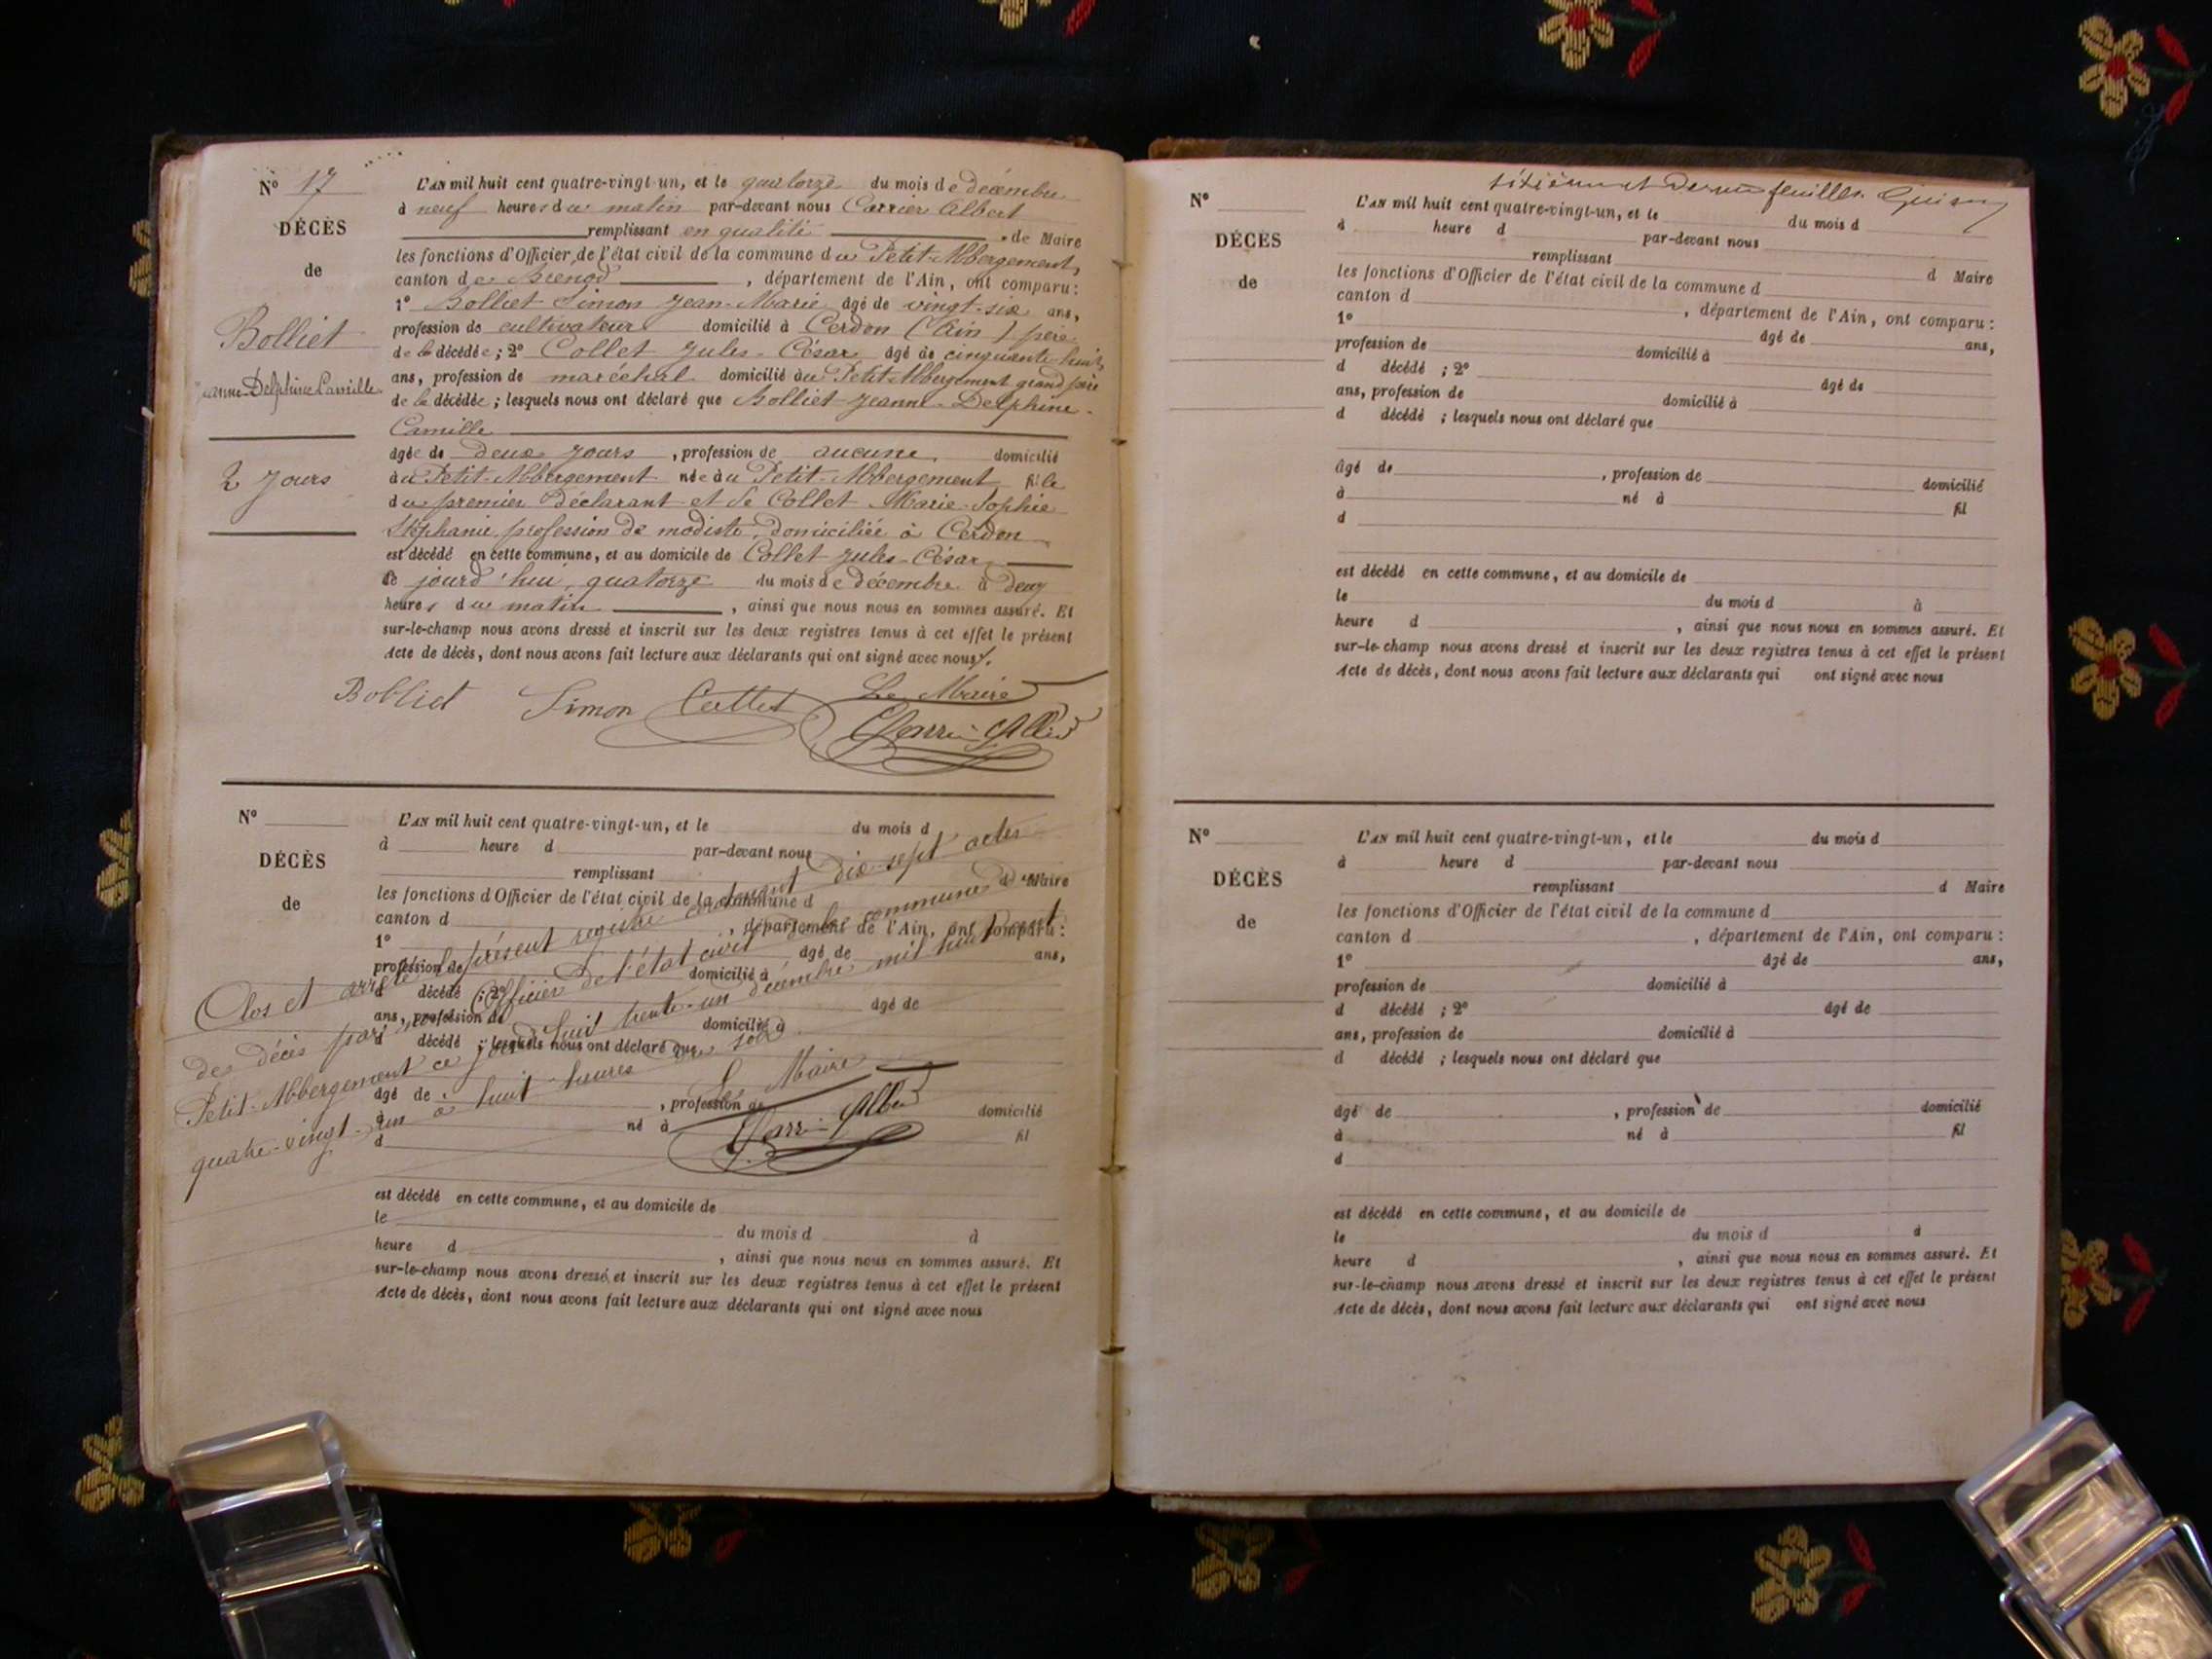 N° 17
DÉCÈS
de
Bolliet
Jeanne-Delphine Camille
2 jours
L'AN mil huit cent quatre-vingt-un, et le quatorze du mois de décembre
à neuf heures du matin par-devant nous Carrier Albert
remplissant en qualité de Maire
les fonctions d'Officier de l'état civil de la commune du Petit-Abbergement,
canton de Brenod , département de l'Ain, ont comparu :
1° Bolliet Simon Jean-Marie âgé de vingt-six ans,
profession de cultivateur domicilié à Cerdon (Ain) père
de la décédée ; 2° Collet Jules-César âgé de cinquante-huit
ans, profession de maréchal domicilié au Petit-Abbergement grand père
de la décédée ; lesquels nous ont déclaré que Bolliet Jeanne-Delphine-
Camille
âgée de deux jours , profession de aucune domicilié
au Petit-Abbergement née au Petit-Abbergement fille
du premier déclarant et de Collet Marie-Sophie
Stéphanie, profession de modiste, domiciliée à Cerdon
est décédé en cette commune, et au domicile de Collet Jules-César
le jourd'hui quatorze du mois de décembre à deux
heures du matin , ainsi que nous nous en sommes assuré. Et
sur-le-champ nous avons dressé et inscrit sur les deux registres tenus à cet effet le présent
Acte de décès, dont nous avons fait lecture aux déclarants qui ont signé avec nous.
Bolliet Simon Collet Le Maire
Carrier Albert
N°
DÉCÈS
de
L'AN mil huit cent quatre-vingt-un, et le du mois d
à heure d par-devant nous
remplissant d Maire
les fonctions d'Officier de l'état civil de la commune d
canton d , département de l'Ain, ont comparu :
1° âgé de ans,
profession de domicilié à
d décédé ; 2° âgé de
ans, profession de domicilié à
d décédé ; lesquels nous ont déclaré que
âgé de , profession de domicilié
à né à fil
d
est décédé en cette commune, et au domicile de
le du mois d à
heure d , ainsi que nous nous en sommes assuré. Et
sur-le-champ nous avons dressé et inscrit sur les deux registres tenus à cet effet le présent
Acte de décès, dont nous avons fait lecture aux déclarants qui ont signé avec nous
Clos et arrêté le présent registre contenant dix-sept actes
de décès par nous Officier de l'état civil de la commune du
Petit-Abbergement ce jourd'huit trente-un décembre mil huit cent
quatre-vingt-un à huit heures du soir
Le Maire
Carrier Albert
sixième et dernier feuillet
N°
DÉCÈS
de
L'AN mil huit cent quatre-vingt-un, et le du mois d
à heure d par-devant nous
remplissant d Maire
les fonctions d'Officier de l'état civil de la commune d
canton d , département de l'Ain, ont comparu :
1° âgé de ans,
profession de domicilié à
d décédé ; 2° âgé de
ans, profession de domicilié à
d décédé ; lesquels nous ont déclaré que
âgé de , profession de domicilié
à né à fil
d
est décédé en cette commune, et au domicile de
le du mois d à
heure d , ainsi que nous nous en sommes assuré. Et
sur-le-champ nous avons dressé et inscrit sur les deux registres tenus à cet effet le présent
Acte de décès, dont nous avons fait lecture aux déclarants qui ont signé avec nous
N°
DÉCÈS
de
L'AN mil huit cent quatre-vingt-un, et le du mois d
à heure d par-devant nous
remplissant d Maire
les fonctions d'Officier de l'état civil de la commune d
canton d , département de l'Ain, ont comparu :
1° âgé de ans,
profession de domicilié à
d décédé ; 2° âgé de
ans, profession de domicilié à
d décédé ; lesquels nous ont déclaré que
âgé de , profession de domicilié
à né à fil
d
est décédé en cette commune, et au domicile de
le du mois d à
heure d , ainsi que nous nous en sommes assuré. Et
sur-le-champ nous avons dressé et inscrit sur les deux registres tenus à cet effet le présent
Acte de décès, dont nous avons fait lecture aux déclarants qui ont signé avec nous